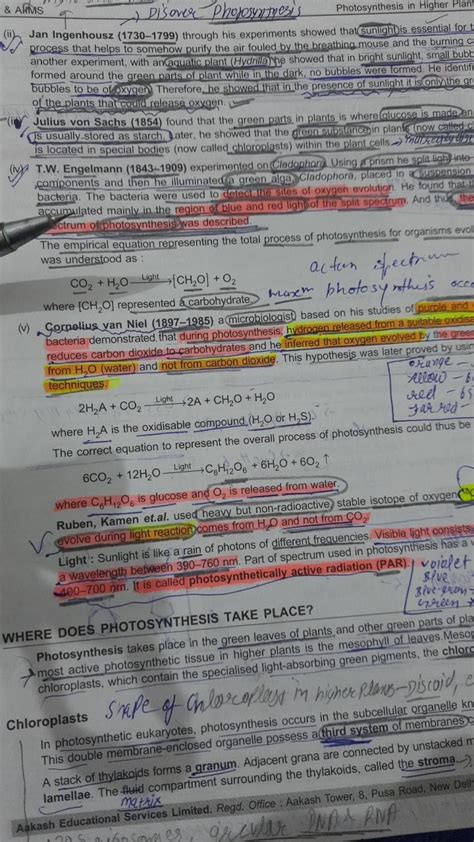 & AIIMS Photosynthesis in Higher Plan
→ Disover Photosynthesis
(ii) Jan Ingenhousz (1730–1799) through his experiments showed that sunlight is essential for t
process that helps to somehow purify the air fouled by the breathing mouse and the burning c
another experiment, with an aquatic plant (Hydrilla) he showed that in bright sunlight, small bubb
formed around the green parts of plant while in the dark, no bubbles were formed. He identifi
bubbles to be of oxygen. Therefore, he showed that in the presence of sunlight it is only the gr
of the plants that could release oxygen.
Julius von Sachs (1854) found that the green parts in plants is where glucose is made
is usually stored as starch. Later, he showed that the green substance in plant (now called
is located in special bodies (now called chloroplasts) within the plant cells.
(iv) T.W. Engelmann (1843–1909) experimented on Cladophora. Using a prism he split light into
components and then he illuminated a green alga, Cladophora, placed in a suspension
bacteria. The bacteria were used to detect the sites of oxygen evolution. He found that
accumulated mainly in the region of blue and red light of the split spectrum. And thus
spectrum of photosynthesis was described.
The empirical equation representing the total process of photosynthesis for organisms evol
was understood as :
action spectrum
CO₂ + H₂O —Light→ [CH₂O] + O₂
Maxm photosynthesis occ
where [CH₂O] represented a carbohydrate.
(v) Cornelius van Niel (1897–1985) a microbiologist based on his studies of purple and
bacteria demonstrated that during photosynthesis, hydrogen released from a suitable oxidisa
reduces carbon dioxide to carbohydrates and he inferred that oxygen evolved by the gree
from H₂O (water) and not from carbon dioxide. This hypothesis was later proved by using
techniques.
orange –
yellow –
red – 6
far red –
2H₂A + CO₂ —Light→ 2A + CH₂O + H₂O
where H₂A is the oxidisable compound (H₂O or H₂S).
The correct equation to represent the overall process of photosynthesis could thus be
6CO₂ + 12H₂O —Light→ C₆H₁₂O₆ + 6H₂O + 6O₂ ↑
where C₆H₁₂O₆ is glucose and O₂ is released from water.
Ruben, Kamen et.al. used heavy but non-radioactive stable isotope of oxygen
evolve during light reaction comes from H₂O and not from CO₂
Light : Sunlight is like a rain of photons of different frequencies. Visible light consists
a wavelength between 390–760 nm. Part of spectrum used in photosynthesis has a w
400–700 nm. It is called photosynthetically active radiation (PAR).
violet
blue
blue-green
green
WHERE DOES PHOTOSYNTHESIS TAKE PLACE?
Photosynthesis takes place in the green leaves of plants and other green parts of pla
most active photosynthetic tissue in higher plants is the mesophyll of leaves. Mesop
chloroplasts, which contain the specialised light-absorbing green pigments, the chloro
Shape of Chloroplast in higher plans – Discoid,
Chloroplasts
In photosynthetic eukaryotes, photosynthesis occurs in the subcellular organelle kn
This double membrane-enclosed organelle possess a third system of membranes
A stack of thylakoids forms a granum. Adjacent grana are connected by unstacked m
lamellae. The fluid compartment surrounding the thylakoids, called the stroma
matrix
Aakash Educational Services Limited. Regd. Office : Aakash Tower, 8, Pusa Road, New Delh
70S ribosomes, circular DNA & RNA